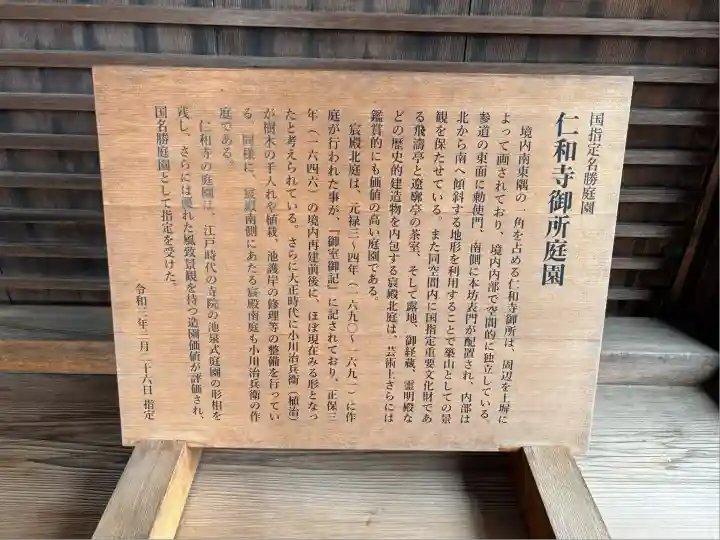 国指定名勝庭園
仁和寺御所庭園
境内南東隅の一角を占める仁和寺御所は、周辺を土塀に
よって画されており、境内内部で空間的に独立している。
参道の東面に勅使門、南側に本坊表門が配置され、内部は
北から南へ傾斜する地形を利用することで築山としての景
観を保たせている。また同空間内に国指定重要文化財であ
る飛濤亭と遼廓亭の茶室、そして露地、御経蔵、霊明殿な
どの歴史的建造物を内包する宸殿北庭は、芸術上さらには
鑑賞的にも価値の高い庭園である。
宸殿北庭は、元禄三〜四年(一六九〇〜一六九一)に作
庭が行われた事が、『御室御記』に記されており、正保三
年(一六四六)の境内再建前後に、ほぼ現在みる形となっ
たと考えられている。さらに大正時代に小川治兵衛(植治)
が樹木の手入れや植栽、池護岸の修理等の整備を行ってい
る。同様に、宸殿南側にあたる宸殿南庭も小川治兵衛の作
庭である。
仁和寺の庭園は、江戸時代の寺院の池泉式庭園の形相を
残し、さらには優れた風致景観を持つ造園価値が評価され、
国名勝庭園として指定を受けた。
令和三年三月二十六日 指定